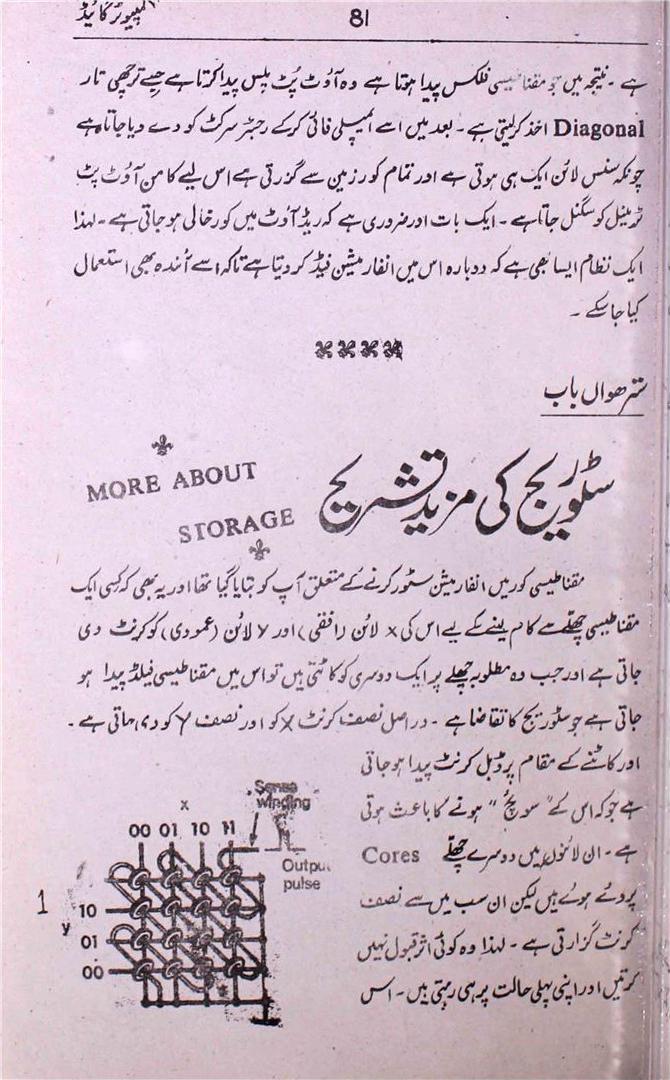 کمپیوٹر گائیڈ
81
ہے ۔ نتیجہ میں جو مقناطیسی فلکس پیدا ہوتا ہے وہ آؤٹ پُٹ پلس پیدا کرتا ہے جسے ترچھی تار
Diagonal اخذ کرلیتی ہے ۔ بعد میں اسے ایمپلی فائی کرکے رجسٹر سرکٹ کو دے دیا جاتا ہے
چونکہ سنس لائن ایک ہی ہوتی ہے اور تمام کورز میں سے گزرتی ہے اس لیے کامن آؤٹ پٹ
ٹرمینل کو سگنل جاتا ہے ۔ ایک بات اور ضروری ہے کہ ریڈ آوٹ میں کور خالی ہو جاتی ہے ۔ لہذا
ایک نظام ایسا بھی ہے کہ دوبارہ اس میں انفارمیشن فیڈ کر دیتا ہے تاکہ اسے آئندہ بھی استعمال
کیا جا سکے ۔
سترھواں باب
سٹوریج کی مزید تشریح
MORE ABOUT
STORAGE
مقناطیسی کور میں انفارمیشن سٹور کرنے کے متعلق آپ کو بتایا گیا تھا اور یہ بھی کہ کسی ایک
مقناطیسی چھلے سے کام لینے کے لیے اس کی x لائن (افقی) اور y لائن (عمودی) کو کرنٹ دی
جاتی ہے اور جب وہ مطلوبہ چھلے پر ایک دوسری کو کاٹتی ہیں تو اس میں مقناطیسی فیلڈ پیدا ہو
جاتی ہے جو سٹوریج کا تقاضا ہے ۔ دراصل نصف کرنٹ X کو اور نصف Y کو دی جاتی ہے ۔
اور کاٹنے کے مقام پر ڈبل کرنٹ پیدا ہو جاتی
ہے جو کہ اس کے "سوئچ" ہونے کا باعث ہوتی
ہے ۔ ان لائنوں میں دوسرے چھلے Cores
پروئے ہوئے ہیں لیکن ان سب میں سے نصف
کرنٹ گزارتی ہے ۔ لہذا وہ کوئی اثر قبول نہیں
کرتیں اور اپنی پہلی حالت پر ہی رہتی ہیں ۔ اس
Sense
winding
x
00 01 10 11
Output
pulse
1
10
y
01
00